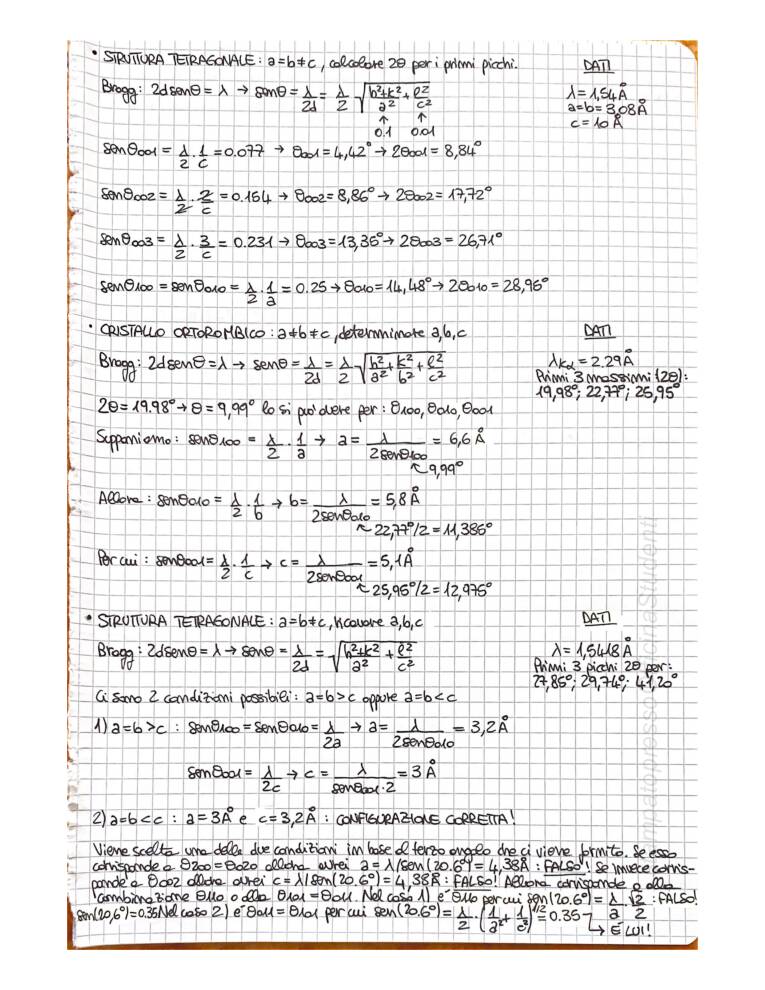 • STRUTTURA TETRAGONALE: a=b≠c, calcolare 2θ per i primi picchi.
DATI
Bragg: 2dsenθ = λ → senθ = λ/2d = λ/2 √(h²+k²/a² + l²/c²)
λ=1,54Å
a=b=3,08Å
c=10Å
↑ ↑
0.1 0.01
senθ001 = λ/2 · 1/c = 0.077 → θ001 = 4,42° → 2θ001 = 8,84°
senθ002 = λ/2 · 2/c = 0.154 → θ002 = 8,86° → 2θ002 = 17,72°
senθ003 = λ/2 · 3/c = 0.231 → θ003 = 13,36° → 2θ003 = 26,71°
senθ100 = senθ010 = λ/2 · 1/a = 0.25 → θ010 = 14,48° → 2θ010 = 28,96°
• CRISTALLO ORTOROMBICO: a≠b≠c, determinate a,b,c
DATI
Bragg: 2dsenθ = λ → senθ = λ/2d = λ/2 √(h²/a² + k²/b² + l²/c²)
λkα = 2.29Å
Primi 3 massimi (2θ):
19,98°; 22,77°; 25,95°
2θ = 19.98° → θ = 9,99° lo si può avere per: θ100, θ010, θ001
Supponiamo: senθ100 = λ/2 · 1/a → a = λ/2senθ100 = 6,6Å
↖ 9,99°
Allora: senθ010 = λ/2 · 1/b → b = λ/2senθ010 = 5,8Å
↖ 22,77°/2 = 11,385°
Per cui: senθ001 = λ/2 · 1/c → c = λ/2senθ001 = 5,1Å
↖ 25,95°/2 = 12,975°
• STRUTTURA TETRAGONALE: a=b≠c, ricavare a,b,c
DATI
Bragg: 2dsenθ = λ → senθ = λ/2d = √(h²+k²/a² + l²/c²)
λ = 1,5418Å
Primi 3 picchi 2θ per:
27,85°; 29,74°; 41,20°
Ci sono 2 condizioni possibili: a=b>c oppure a=b<c
1) a=b>c: senθ100 = senθ010 = λ/2a → a = λ/2senθ010 = 3,2Å
senθ001 = λ/2c → c = λ/senθ001·2 = 3Å
2) a=b<c: a=3Å e c=3,2Å: CONFIGURAZIONE CORRETTA!
Viene scelta una delle due condizioni in base al terzo angolo che ci viene fornito. Se esso
corrisponde a θ200 = θ020 allora avrei a = λ/sen(20.6°) = 4,38Å: FALSO! Se invece corris-
ponde a θ002 allora avrei c = λ/sen(20.6°) = 4,38Å: FALSO! Allora corrisponde o alla
combinazione θ110 o alla θ101 = θ011. Nel caso 1) è θ110 per cui sen(20.6°) = λ/a · √2/2: FALSO!
sen(20,6°)=0.35 Nel caso 2) è θ011 = θ101 per cui sen(20.6°) = λ/2 · (1/a² + 1/c²)^1/2 = 0.35
↳ È LUI!